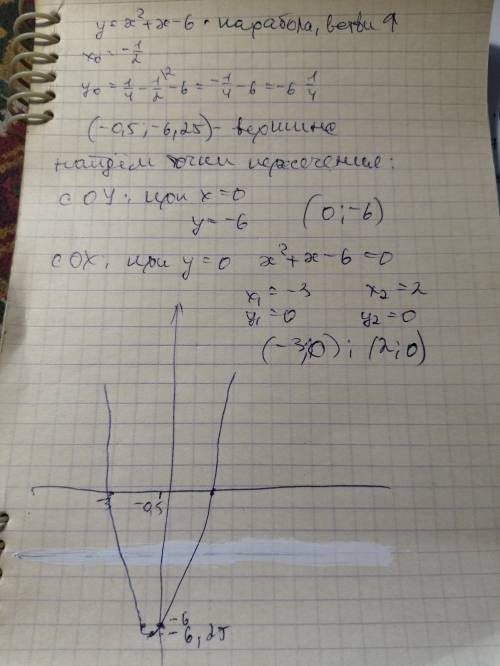 y = x² + x - 6 • парабола, ветви ↑
x₀ = -1/2
y₀ = 1/4 - 1/2 \2 - 6 = -1/4 - 6 = -6 1/4
(-0,5; -6,25) - вершина
найдем точки пересечения:
с OY: при x = 0
y = -6 (0; -6)
с OX, при y = 0 x² + x - 6 = 0
x₁ = -3 x₂ = 2
y₁ = 0 y₂ = 0
(-3; 0); (2; 0)
-3 -0,5
-6
-6,25